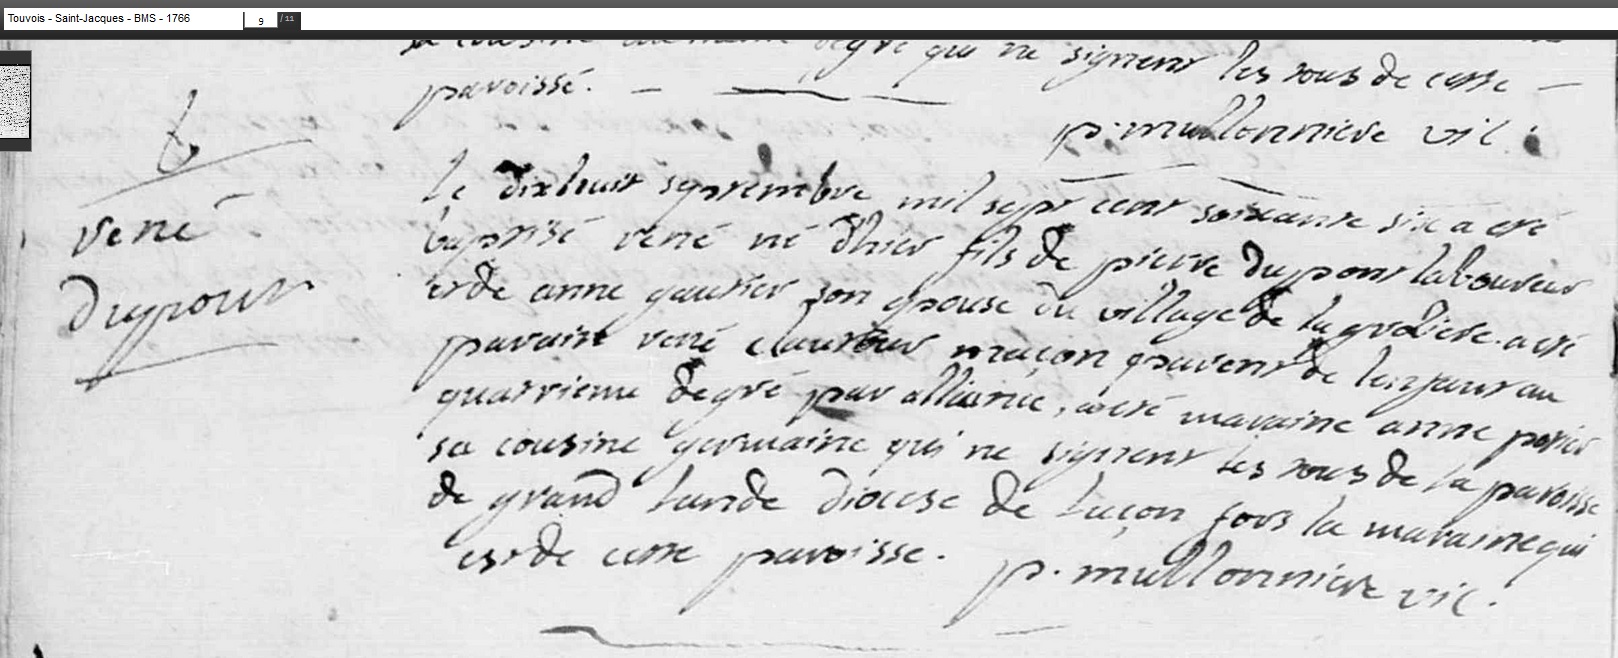 Touvois - Saint-Jacques - BMS - 1766
9 / 11
sa cousine au même degré qui ne signent les tous de cette
paroisse.
p. mullonniere vic.
B
rené
Dupont
le dixhuit septembre mil sept cent soixante six a été
baptisé rené né d'hier fils de pierre dupont laboureur
et de anne gautier son epouse du village de la groliere. a été
parain rené maçon parent de l'enfant au
quatrieme degré par alliance, a été maraine anne perier
sa cousine germaine qui ne signent les tous de la paroisse
de grand lande diocese de luçon fors la maraine qui
est de cette paroisse.
p. mullonniere vic.